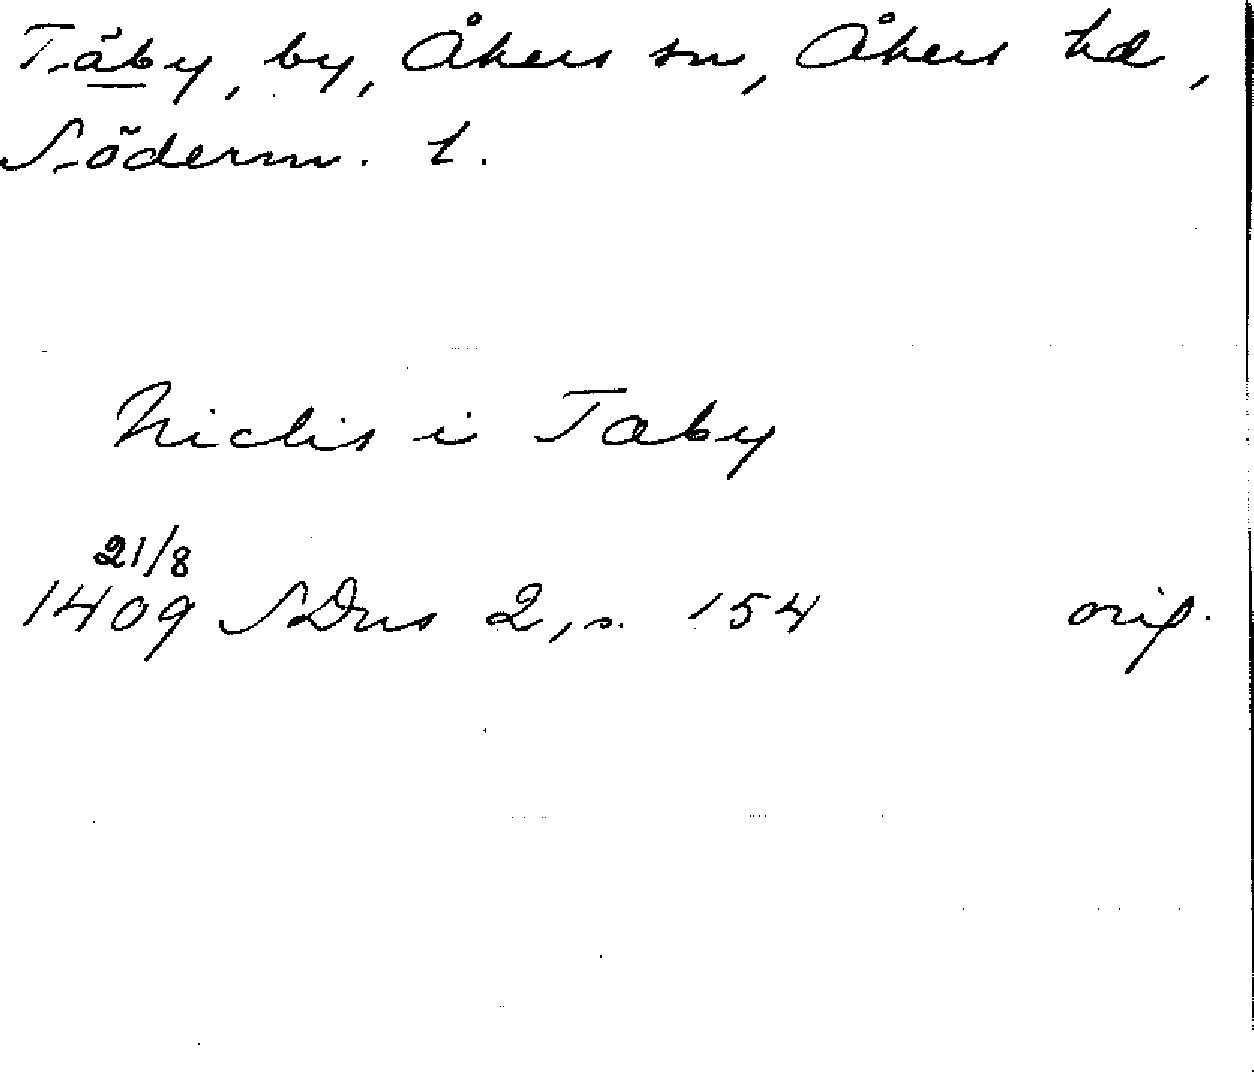 Täby, by, Åkers sn, Åkers hd,
Söderm. l.
Niclis i Taby
21/8
1409 SDns 2, s. 154 orig.